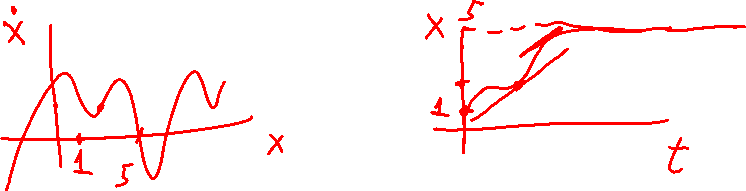 ẋ
1
5
x
x
5
1
t